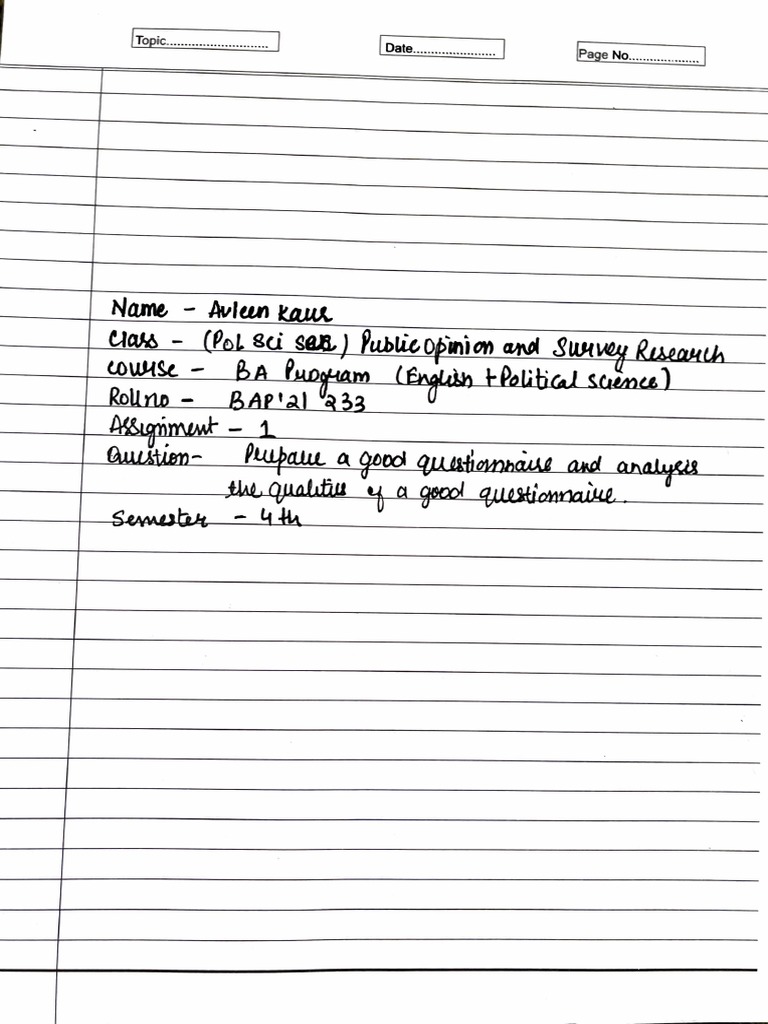 Topic............................ Date....................... Page No....................
Name - Avleen Kaur
Class - (Pol Sci SEC) Public Opinion and Survey Research
Course - BA Program (English + Political Science)
Roll no - BAP'21 233
Assignment - 1
Question - Prepare a good questionnaire and analysis
the qualities of a good questionnaire.
Semester - 4th